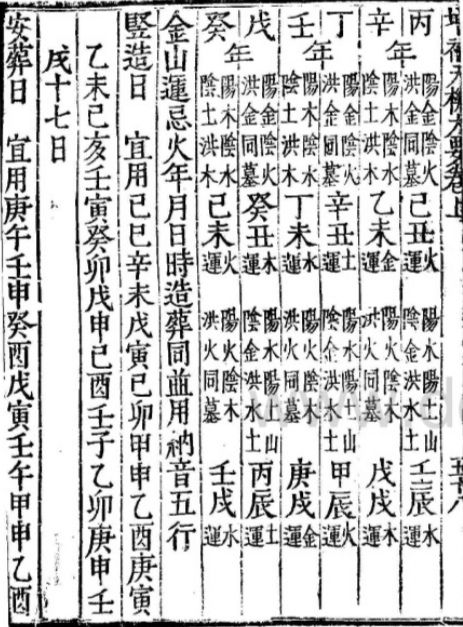 丙年 陽金陰火洪金同墓 己丑火運 陽水陽土山陰金洪水土 壬辰水運
辛 陽木陰水陰土洪木 乙未金運 陽火陰木洪火同墓 戊戌木運
丁年 陽金陰火洪金同墓 辛丑土運 陽水陽土山陰金洪水土 甲辰火運
壬 陽木陰水陰土洪木 丁未水運 陽火陰木洪火同墓 庚戌金運
戊年 陽金陰火洪金同墓 癸丑木運 陽水陽土山陰金洪水土 丙辰土運
癸 陽木陰水陰土洪木 己未火運 陽火陰木洪火同墓 壬戌水運
金山運忌火年月日時造葬同並用衲音五行
竪造日 宜用己巳辛未戊寅己卯甲申乙酉庚寅
乙未己亥壬寅癸卯戊申己酉壬子乙卯庚申壬
戌十七日
安葬日 宜用庚午壬申癸酉戊寅壬午甲申乙酉